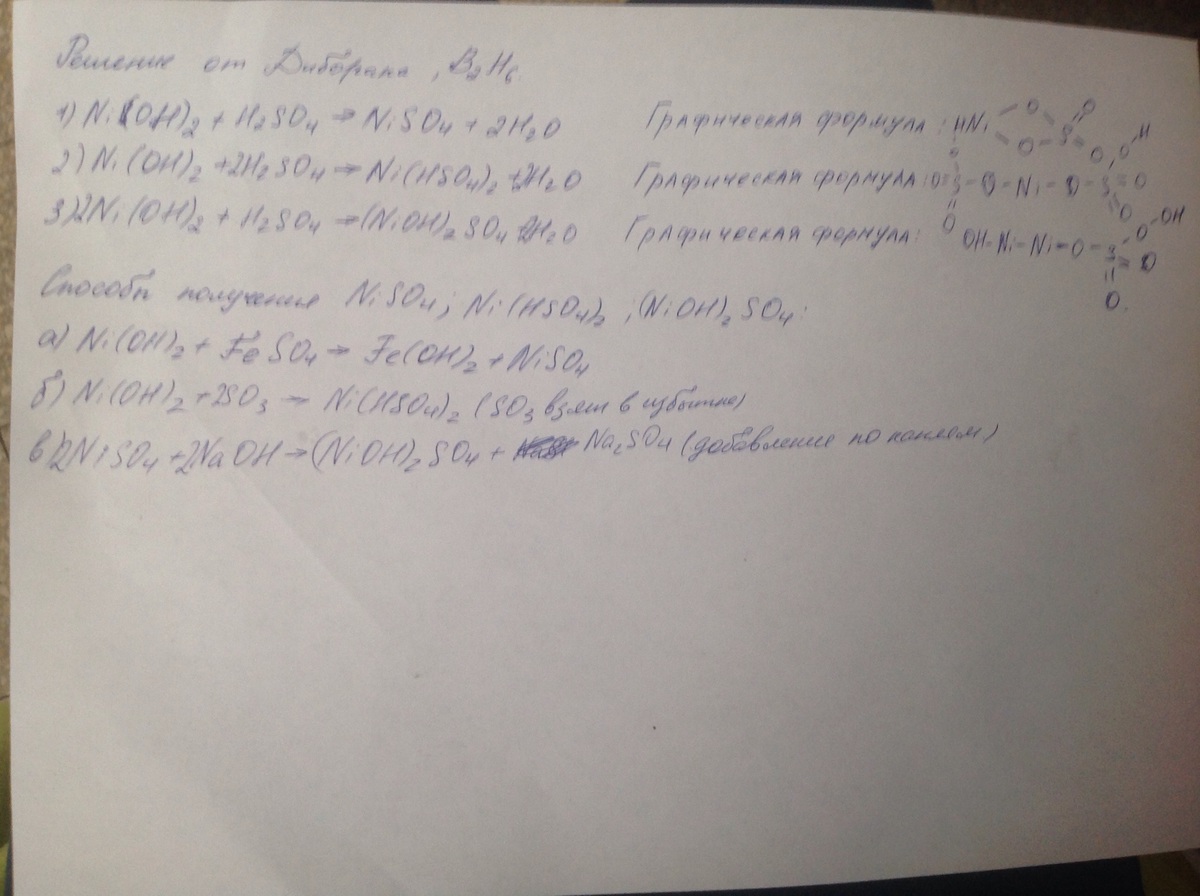 Решение от Диборана, B₂H₆.
1) Ni(OH)₂ + H₂SO₄ → NiSO₄ + 2H₂O Графическая формула:
2) Ni(OH)₂ + 2H₂SO₄ → Ni(HSO₄)₂ + 2H₂O Графическая формула: O=S-O-Ni-O-S=O
3) 2Ni(OH)₂ + H₂SO₄ → (NiOH)₂SO₄ + 2H₂O Графическая формула: OH-Ni-Ni-O-S=O
Способы получения NiSO₄; Ni(HSO₄)₂; (NiOH)₂SO₄:
а) Ni(OH)₂ + FeSO₄ → Fe(OH)₂ + NiSO₄
б) Ni(OH)₂ + 2SO₃ → Ni(HSO₄)₂ (SO₃ взят в избытке)
в) 2NiSO₄ + 2NaOH → (NiOH)₂SO₄ + Na₂SO₄ (добавление по каплям)